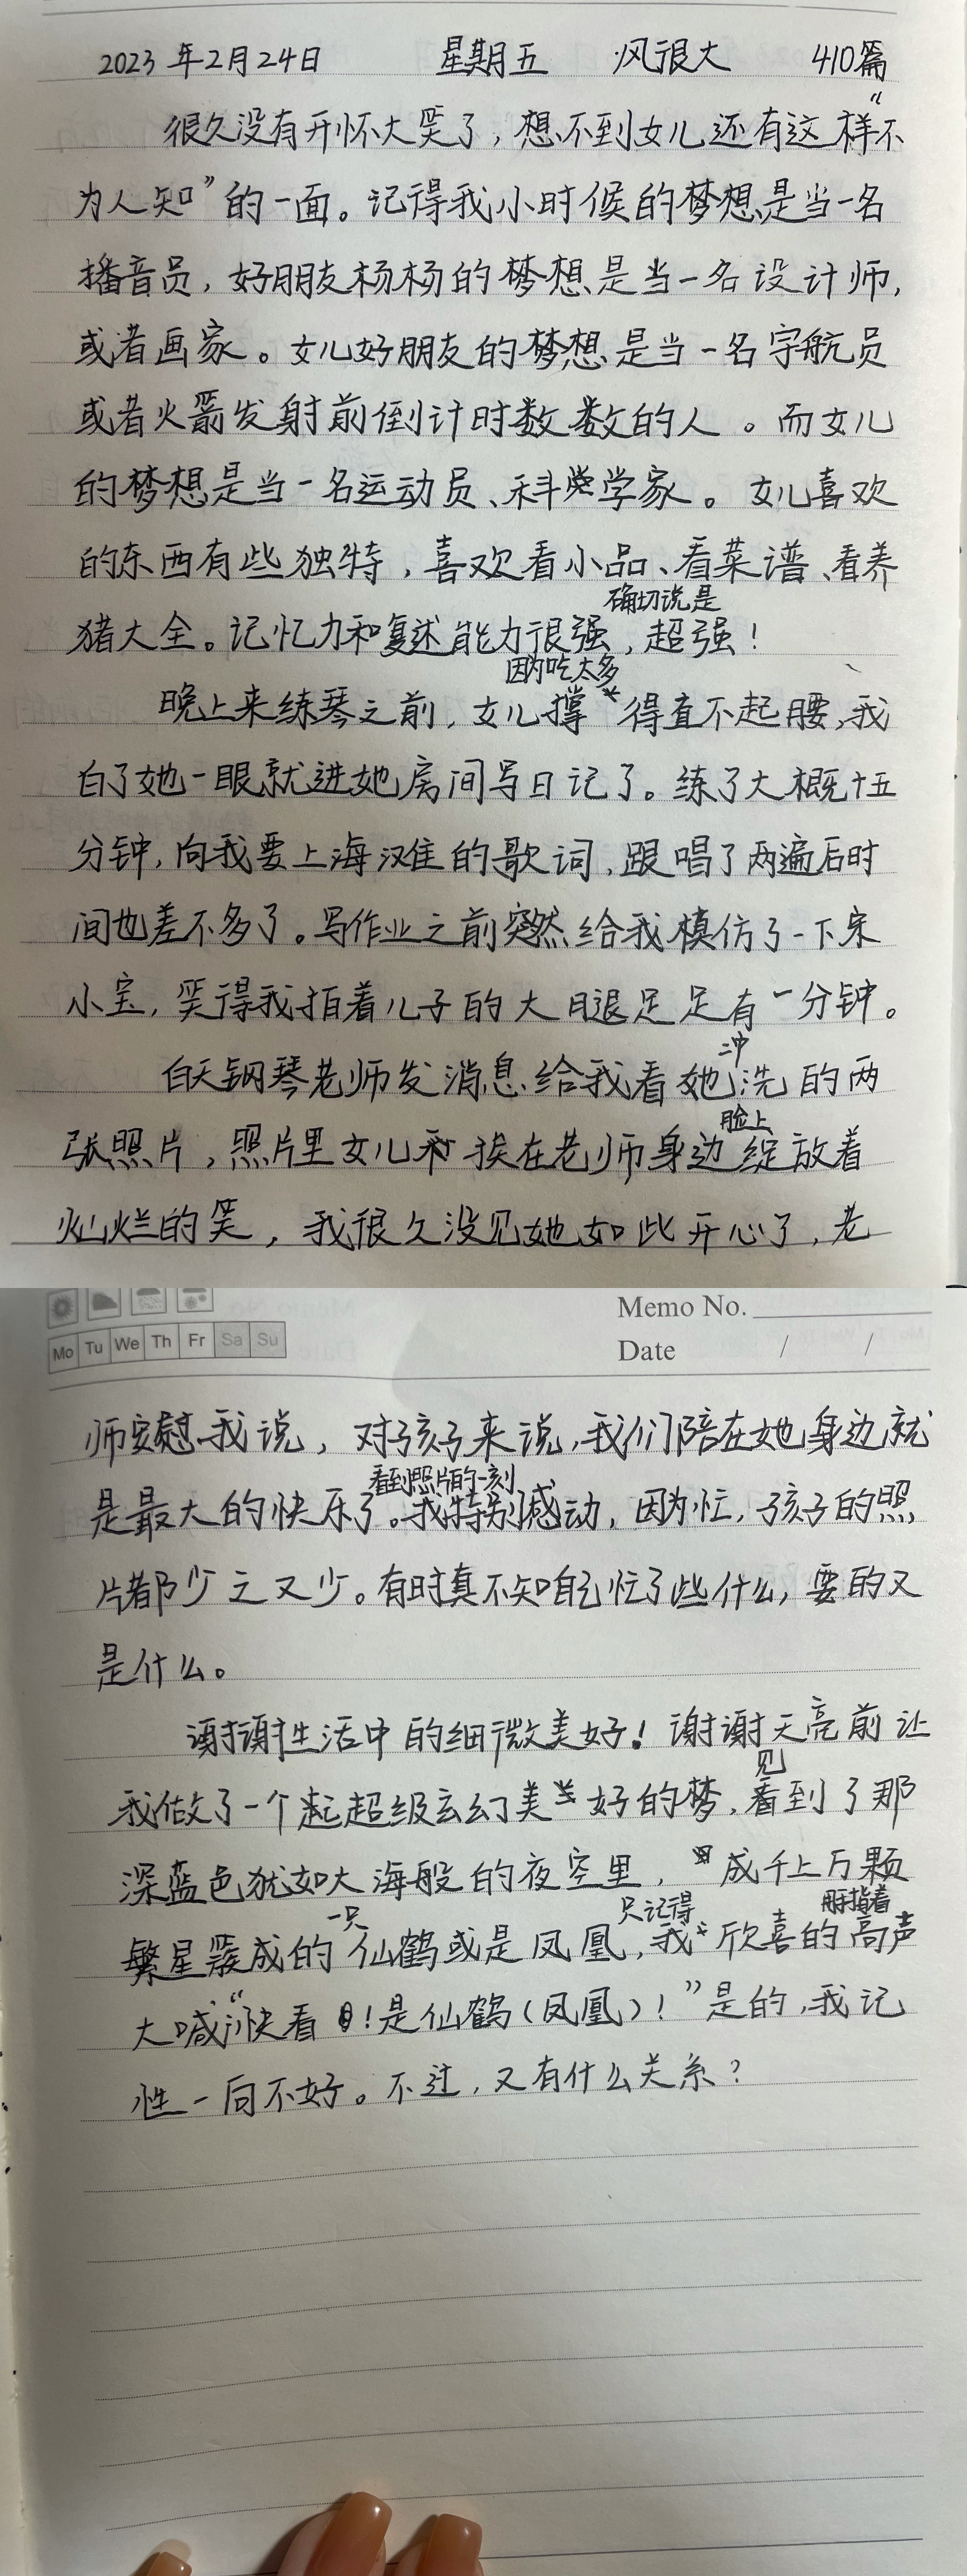 2023年2月24日 星期五 风很大 410篇
很久没有开怀大笑了，想不到女儿还有这样“不
为人知”的一面。记得我小时候的梦想是当一名
播音员，好朋友杨杨的梦想是当一名设计师，
或者画家。女儿好朋友的梦想是当一名宇航员
或者火箭发射前倒计时数数的人。而女儿
的梦想是当一名运动员、科学家。女儿喜欢
的东西有些独特，喜欢看小品、看菜谱、看养
确切说是
猪大全。记忆力和复述能力很强，超强！
因为吃太多
晚上来练琴之前，女儿撑得直不起腰，我
白了她一眼就进她房间写日记了。练了大概十五
分钟，向我要上海滩的歌词，跟唱了两遍后时
间也差不多了。写作业之前突然给我模仿了一下宋
小宝，笑得我拍着儿子的大腿足足有一分钟。
冲
白天钢琴老师发消息给我看她洗的两
脸上
张照片，照片里女儿挨在老师身边绽放着
灿烂的笑，我很久没见她如此开心了，老
Memo No.
Mo Tu We Th Fr Sa Su
Date / /
师安慰我说，对孩子来说，我们陪在她身边就
看到照片的一刻
是最大的快乐了。我特别感动，因为忙，孩子的照
片都少之又少。有时真不知自己忙了些什么，要的又
是什么。
谢谢生活中的细微美好！谢谢天亮前让
见
我做了一个超级玄幻美好的梦，看到了那
深蓝色犹如大海般的夜空里，成千上万颗
一只 只记得 用手指着
繁星聚成的仙鹤或是凤凰，我欣喜的高声
大喊：“快看！是仙鹤（凤凰）！”是的，我记
性一向不好。不过，又有什么关系？